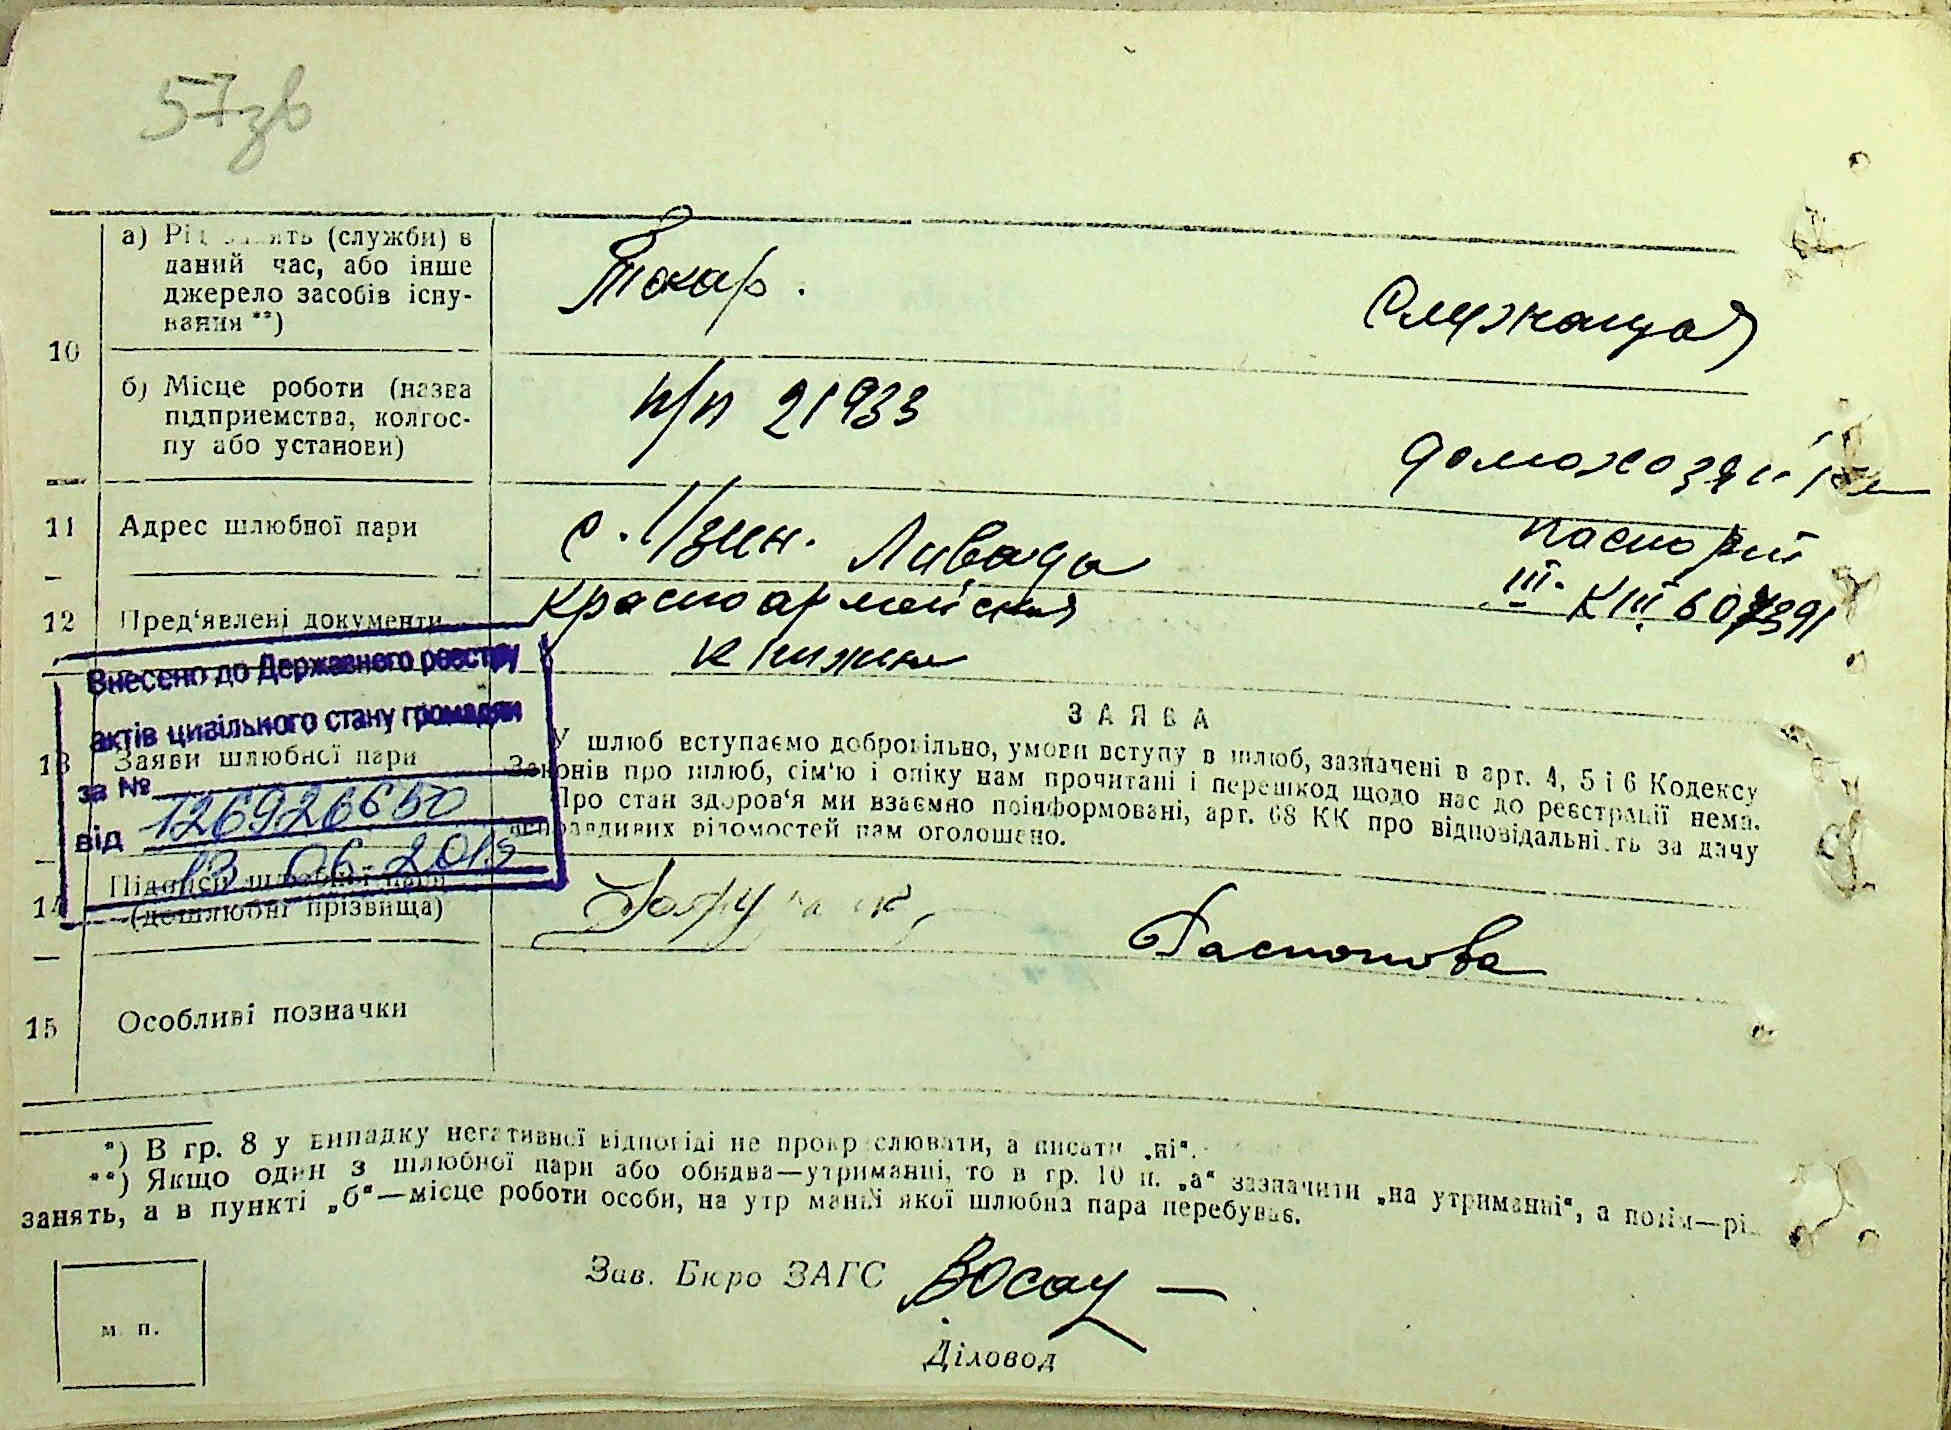 57зв
а) Рід занять (служби) в
даний час, або інше
джерело засобів існу-
вання **)
Токар.
Служащая
10
б) Місце роботи (назва
підприємства, колгос-
пу або установи)
п/п 21933
домохозяйка
11 Адрес шлюбної пари
с. Узин. Ливада
паспорт
12 Пред'явлені документи
Красноармейская
книжка
III. КIII. 607391
Внесено до Державного реєстру
актів цивільного стану громадян
за № 126926650
від 13 06. 2013
13 Заяви шлюбної пари
ЗАЯВА
У шлюб вступаємо добровільно, умови вступу в шлюб, зазначені в арт. 4, 5 і 6 Кодексу
Законів про шлюб, сім'ю і опіку нам прочитані і перешкод щодо нас до реєстрації нема.
Про стан здоров'я ми взаємно поінформовані, арт. 68 КК про відповідальність за дачу
неправдивих відомостей нам оголошено.
14 Підписи шлюбної пари
(дошлюбні прізвища)
Распопова
15 Особливі позначки
*) В гр. 8 у випадку негативної відповіді не прокреслювати, а писати „ні“.
**) Якщо один з шлюбної пари або обидва—утриманці, то в гр. 10 п. „а“ зазначити „на утриманні“, а потім—рід
занять, а в пункті „б“—місце роботи особи, на утриманні якої шлюбна пара перебуває.
Зав. Бюро ЗАГС
Діловод
м. п.